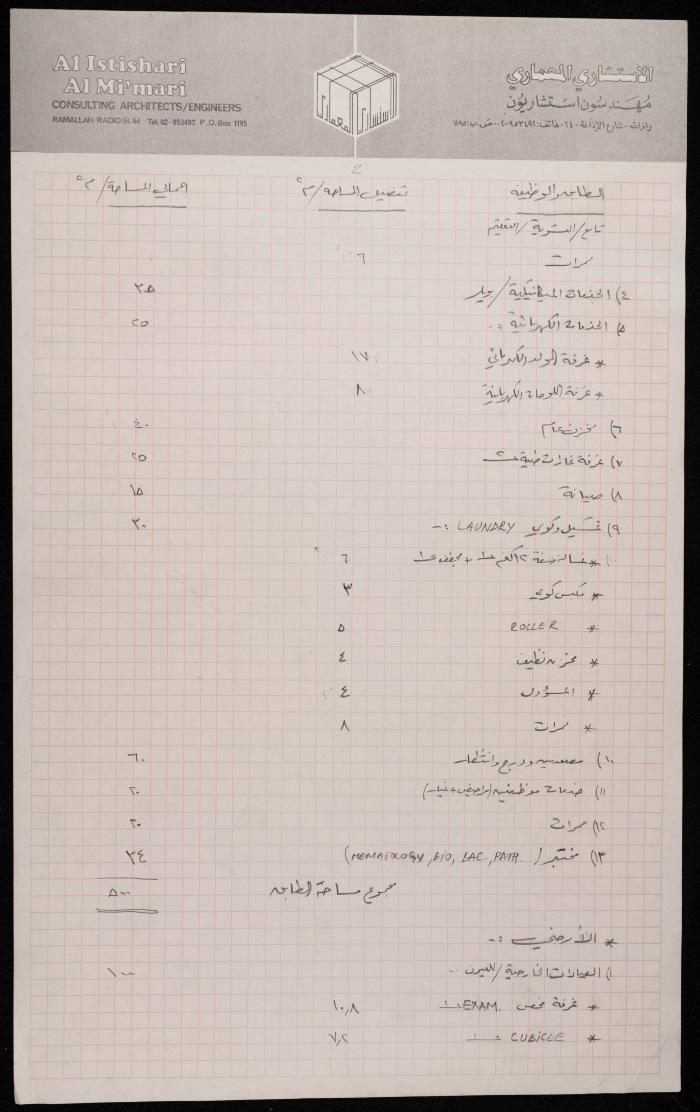 Al Istishari
Al Mi'mari
CONSULTING ARCHITECTS/ENGINEERS
RAMALLAH-RADIO St. 64 Tel. 02-953492 P.O.Box 1195
الاستشاري المعماري
مهندسون استشاريون
رام الله - شارع الإذاعة - ٦٤ - هاتف: ٩٥٣٤٩٢-٠٢ - ص.ب: ١١٩٥
2
الطابق والوظيفة تفصيل المساحة/م٢ اجمالي المساحة/م٢
تابع/التسوية/التعقيم
ممرات ٦
٤) الخدمات الميكانيكية/بويلر ٣٥
٥) الخدمات الكهربائية :- ٢٥
* غرفة المولد الكهربائي ١٧
* غرفة اللوحات الكهربائية ٨
٦) مخزن عام ٤٠
٧) غرفة غازات طبية ٢٥
٨) صيانة ١٥
٩) غسيل وكوي LAUNDRY :- ٣٠
* غسالة ١٢ كغم + مجفف ٦
* مكبس كوي ٣
* ROLLER ٥
* مخزن نظيف ٤
* المسؤول ٤
* ممرات ٨
١٠) مصعدين ودرج وانتظار ٦٠
١١) خدمات موظفين (مراحيض + غيار) ٢٠
١٢) ممرات ٢٠
١٣) مختبر (HEMATOLOGY, BIO, LAC., PATH.) ٣٤
مجموع مساحة الطابق ٥٠٠
* الأرضي :-
١) العيادات الخارجية/للعيون :- ١٠٠
* غرفة فحص EXAM. ١٠,٨
* CUBICLE ٧,٢